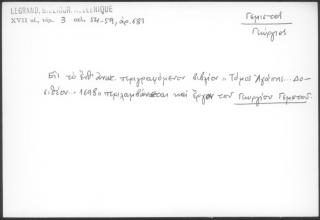 LEGRAND, BIBLIOGR. HELLENIQUE
XVII αἰ, τόμ. 3 σελ. 54-59, ἀρ. 681
Γεμιστοῦ
Γεωργίου
Εἰς τὸ ἐνθ' ἀνωτ. περιγραφόμενον βιβλίον "Τόμος Ἀγάπης... Δο-
σιθέου... 1698" περιλαμβάνεται καὶ ἔργον τοῦ Γεωργίου Γεμιστοῦ.